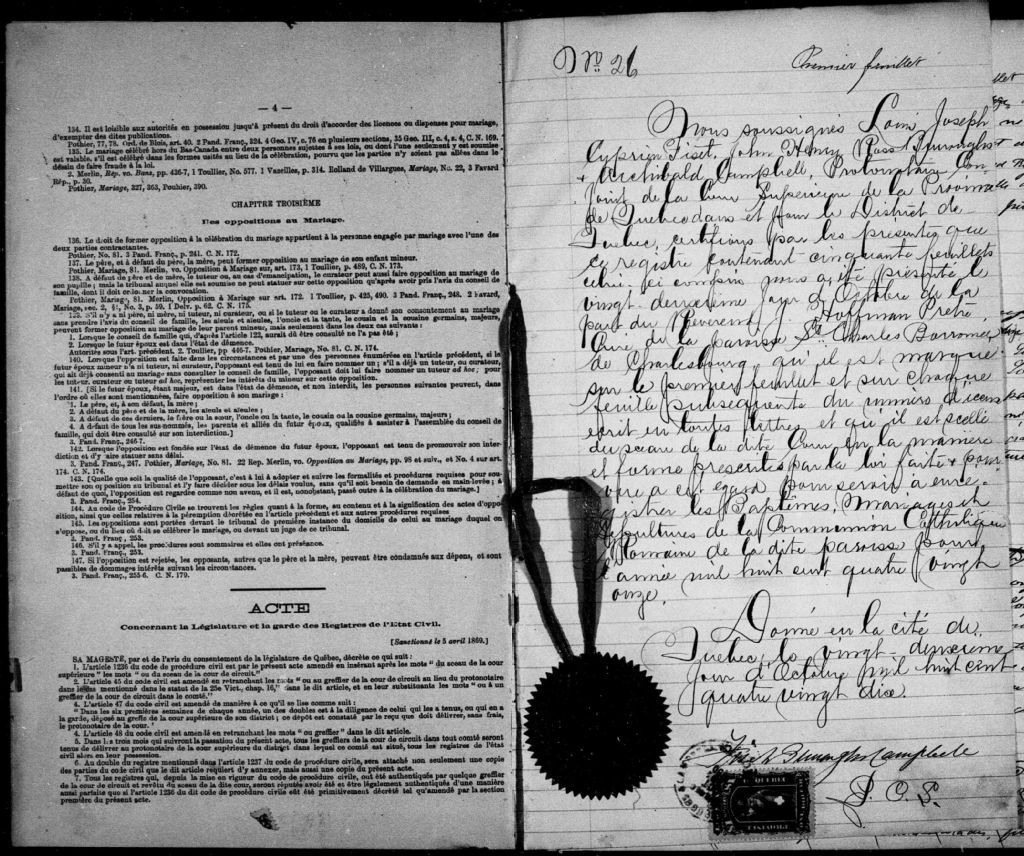 — 4 —
134. Il est loisible aux autorités en possession jusqu'à présent du droit d'accorder des licences ou dispenses pour mariage,
d'exempter des dites publications.
Pothier, 77, 78. Ord. de Blois, art. 40. 2 Pand. Franç., 324. 4 Geo. IV, c. 76 en plusieurs sections, 35 Geo. III, c. 4, s. 4, C. N. 169.
135. Le mariage célébré hors du Bas-Canada entre deux personnes sujettes à ses lois, ou dont l'une seulement y est soumise
est valable, s'il est célébré dans les formes usités au lieu de la célébration, pourvu que les parties n'y soient pas allées dans le
dessin de faire fraude à la loi.
2. Merlin, Rép. vo. Bans, pp. 436-7, 1 Toullier, No. 577. 1 Vazeilles, p. 314. Rolland de Villargues, Mariage, No. 22, 3 Favard
Rép., p. 30.
Pothier, Mariage, 327, 363, Pouhier, 390.
CHAPITRE TROISIÈME
Des oppositions au Mariage.
136. Le droit de former opposition à la célébration du mariage appartient à la personne engagée par mariage avec l'une des
deux parties contractantes.
Pothier, No. 81. 3 Pand. Franç., p. 241. C. N. 172.
137. Le père, et à défaut du père, la mère, peut former opposition au mariage de son enfant mineur.
Pothier, Mariage, 81. Merlin, vo. Opposition à Mariage sur art. 173, 1 Toullier, p. 489, C. N. 173.
138. A défaut de père et de mère, le tuteur ou, au cas d'émancipation, le curateur peut aussi faire opposition au mariage de
son pupille; mais le tribunal auquel elle est soumise ne peut statuer sur cette opposition qu'après avoir pris l'avis du conseil de
famille, dont il doit ordonner la convocation.
Pothier, Mariage, 81. Merlin, Opposition à Mariage sur art. 172. 1 Toullier, p. 425, 490. 3 Pand. Franç., 248. 2 Favard,
Mariage, sec. 2, §, No. 3, p. 59, 1 Delv. p. 62. C. N. 175.
139. S'il n'y a ni père, ni mère, ni tuteur, ni curateur, ou si le tuteur ou le curateur a donné son consentement au mariage
sans prendre l'avis du conseil de famille, les aïeuls et aïeules, l'oncle et la tante, le cousin et la cousine germains, majeurs,
peuvent former opposition au mariage de leur parent mineur, mais seulement dans les deux cas suivants :
1. Lorsque le conseil de famille qui, d'après l'article 122, aurait dû être consulté ne l'a pas été ;
2. Lorsque le futur époux est dans l'état de démence.
Autorités sous l'art. précédent. 2. Toullier, pp 446-7. Pothier, Mariage, No. 81. C. N. 174.
140. Lorsque l'opposition est faite dans les circonstances et par une des personnes énumérées en l'article précédent, si le
futur époux mineur n'a ni tuteur, ni curateur, l'opposant est tenu de lui en faire nommer un ; s'il a déjà un tuteur, ou curateur,
qui ait déjà consenti au mariage sans consulter le conseil de famille, l'opposant doit lui faire nommer un tuteur ad hoc ; pour
les tuteur, curateur ou tuteur ad hoc, représenter les intérêts du mineur sur cette opposition.
141. [Si le futur époux, étant majeur, est dans l'état de démence, et non interdit, les personnes suivantes peuvent, dans
l'ordre où elles sont mentionnées, faire opposition à son mariage :
1. Le père, et, à son défaut, la mère ;
2. A défaut du père et de la mère, les aïeuls et aïeules ;
3. A défaut de ces derniers, le frère ou la sœur, l'oncle ou la tante, le cousin ou la cousine germains, majeurs ;
4. A défaut de tous les sus-nommés, les parents et alliés du futur époux, qualifiés à assister à l'assemblée du conseil de
famille, qui doit être consulté sur son interdiction.]
3. Pand. Franç., 246-7.
142. Lorsque l'opposition est fondée sur l'état de démence du futur époux, l'opposant est tenu de promouvoir son inter-
diction et d'y faire statuer sans délai.
3. Pand. Franç., 247. Pothier, Mariage, No. 81. 22 Rep. Merlin, vo. Opposition au Mariage, pp. 98 et suiv., et No. 4 sur art.
174. C. N. 174.
143. [Quelle que soit la qualité de l'opposant, c'est à lui à adopter et suivre les formalités et procédures requises pour sou-
mettre son opposition au tribunal et l'y faire décider sous les délais voulus, sans qu'il soit besoin de demande en main-levée ; à
défaut de quoi, l'opposition est regardée comme non avenu, et il est, nonobstant, passé outre à la célébration du mariage.]
3. Pand. Franç., 254.
144. Au code de Procédure Civile se trouvent les règles quant à la forme, au contenu et à la signification des actes d'oppo-
sition, ainsi que celles relatives à la péremption décrétée en l'article précédent et aux autres procédures requises
145. Les oppositions sont portées devant le tribunal de première instance du domicile de celui au mariage duquel on
s'oppose, ou du lieu où doit se célébrer le mariage, ou devant un juge de ce tribunal.
3. Pand. Franç., 253.
146. S'il y a appel, les procédures sont sommaires et elles ont préséance.
3. Pand. Franç., 253.
147. Si l'opposition est rejetée, les opposants, autres que le père et la mère, peuvent être condamnés aux dépens, et sont
passibles de dommages intérêts suivant les circonstances.
3. Pand. Franç., 255-6. C. N. 179.
ACTE
Concernant la Législature et la garde des Registres de l'Etat Civil.
[Sanctionné le 5 avril 1869.]
SA MAGESTÉ, par et de l'avis du consentement de la législature de Québec, décrète ce qui suit :
1. L'article 1236 du code de procédure civil est par le présent acte amendé en insérant après les mots " du sceau de la cour
supérieure " les mots " ou du sceau de la cour de circuit."
2. L'article 45 du code civil est amendé en retranchant les mots " ou au greffier de la cour de circuit au lieu du protonotaire
dans les cas mentionné dans le statut de la 25e Vict., chap. 16," dans le dit article, et en leur substituants les mots " ou à un
greffier de la cour de circuit dans le comté."
4. L'article 47 du code civil est amendé de manière à ce qu'il se lise comme suit :
" Dans les six premières semaines de chaque année, un des doubles est à la diligence de celui qui les a tenus, ou qui en a
la garde, déposé au greffe de la cour supérieure de son district ; ce dépôt est constaté par le reçu que doit délivrer, sans frais,
le protonotaire de la cour. "
4. L'article 48 du code civil est amendé en retranchant les mots " ou greffier " dans le dit article.
5. Dans les trois mois qui suivront la passation du présent acte, tous les greffiers de la cour de circuit dans tout comté seront
tenus de délivrer au protonotaire de la cour supérieure du district dans lequel ce comté est situé, tous les registres de l'état
civil alors en leur possession.
6. Au double du registre mentionné dans l'article 1237 du code de procédure civile, sera attaché non seulement une copie
des parties du code civile que le dit article requiert d'y annexer, mais aussi une copie du présent acte.
7. Tous les registres qui, depuis la mise en vigueur du code de procédure civile, ont été authentiqués par quelque greffier
de la cour de circuit et revêtu du sceau de la dite cour, seront réputés avoir été et être légalement authentiqués d'une manière
aussi parfaite que si l'article 1236 du dit code de procédure civile eût été primitivement décrété tel qu'amendé par la section
première du présent acte.
No 26
Premier feuillet
Nous soussignés Louis Joseph
Cyprien Fiset, John Henry Ross Burroughs
& Archibald Campbell, Protonotaire Con-
joint de la Cour Supérieure de la Province
de Quebec dans et pour le District de
Quebec, certifions par les presentes que
ce registre contenant cinquante feuillets
celui-ci compris nous a été présenté le
vingt-deuxième jour d'Octobre de la
part du Reverend Hoffman Prêtre
Curé de la paroisse St Charles Borromée
de Charlesbourg, qu'il est marqué
sur le premier feuillet et sur chaque
feuille subséquente du numéro d'icem
écrit en toutes lettres et qu'il est scellé
du sceau de la dite Cour en la manière
et forme prescrites par la loi faite & pour-
vue à cet égard pour servir à enre-
gistrer les Baptêmes, Mariages et
Sépultures de la Communion Catholique
Romaine de la dite paroisse pour
l'année mil huit cent quatre vingt
onze.
Donné en la cité de
Quebec, le vingt-deuxième
jour d'Octobre mil huit cent
quatre vingt dix.
Fiset Burroughs Campbell
P. C. S.
QUEBEC